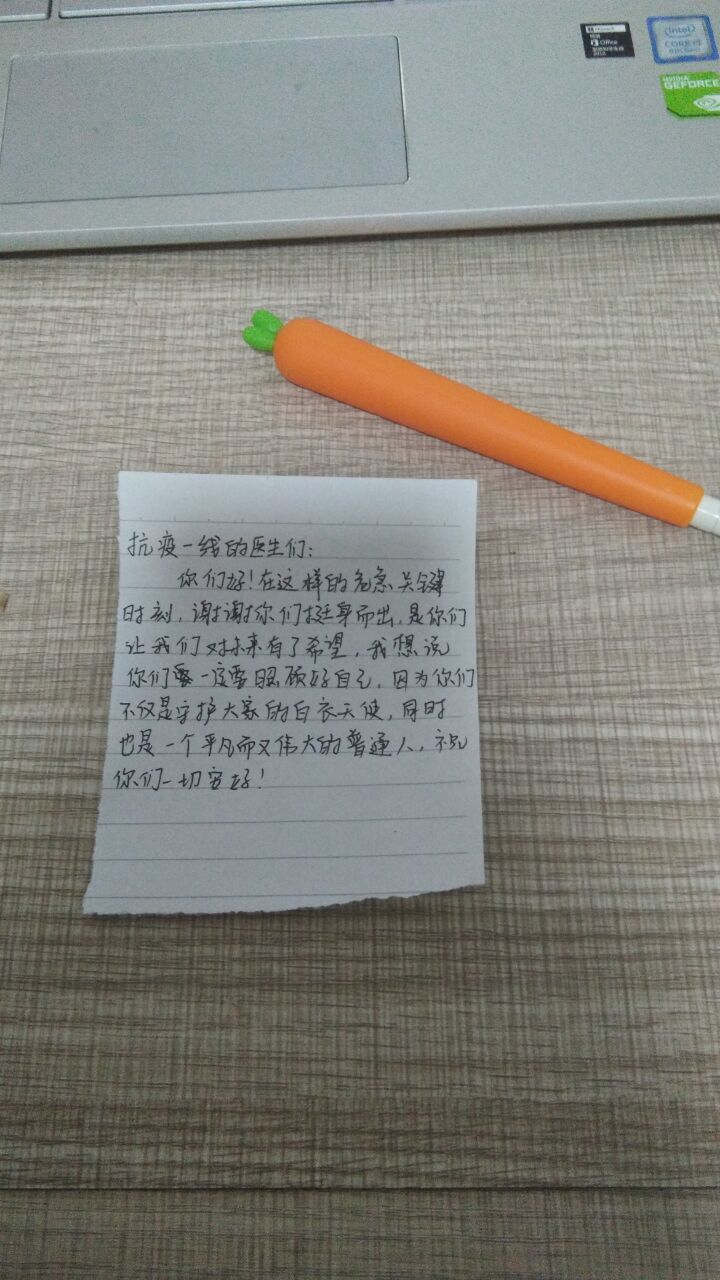 Microsoft
Office
2016
intel
CORE i5
NVIDIA
GEFORCE
抗疫一线的医生们:
你们好!在这样的危急关键
时刻,谢谢你们挺身而出,是你们
让我们对未来有了希望,我想说
你们一定要照顾好自己,因为你们
不仅是守护大家的白衣天使,同时
也是一个平凡而又伟大的普通人,祝
你们一切安好!